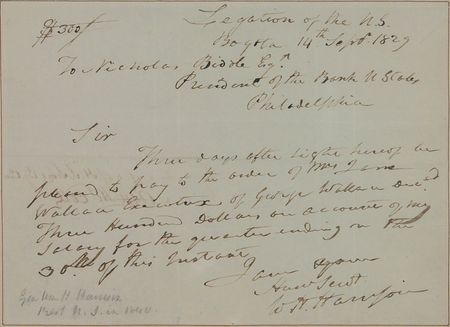 $300/
Legation of the U.S.
Bogota 14th Sept. 1829
To Nicholas Biddle Esqr.
President of the Bank U States
Philadelphia
Sir
Three days after sight hereof be
pleased to pay to the order of Mrs Jane
Wallace Executrix of George Wallace Decd.
Three Hundred Dollars on account of my
Salary for the quarter ending on the
30th of this Instant
I am yours
Humb Servt
W. H. Harrison
Gen Wm H. Harrison
Prest U. S. in 1840.